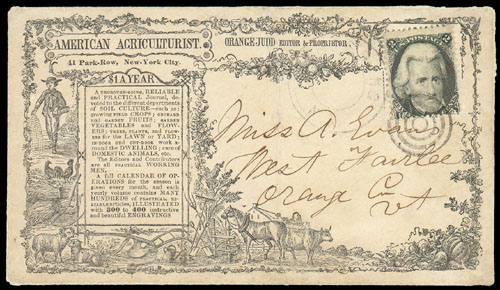 AMERICAN AGRICULTURIST.
ORANGE JUDD EDITOR & PROPRIETOR
41 Park-Row, New-York City.
$1 A YEAR
A THOROUGH-GOING, RELIABLE
and PRACTICAL Journal, de-
voted to the different departments
of SOIL CULTURE—such as:
growing FIELD CROPS; ORCHARD
and GARDEN FRUITS; GARDEN
VEGETABLES and FLOW-
ERS; TREES, PLANTS, and FLOW-
ERS for the LAWN or YARD;
IN-DOOR and OUT-DOOR WORK
around the DWELLING; care of
DOMESTIC ANIMALS, etc.
The Editors and Contributors
are all PRACTICAL WORKING
MEN.
A full CALENDAR OF OP-
ERATIONS for the season is
given every month, and each
yearly volume contains MANY
HUNDREDS of PRACTICAL, RE-
LIABLE ARTICLES, ILLUSTRATED
with 300 to 400 instructive
and beautiful ENGRAVINGS
Miss A. Evans
West Fairlee
Orange Co
Vt